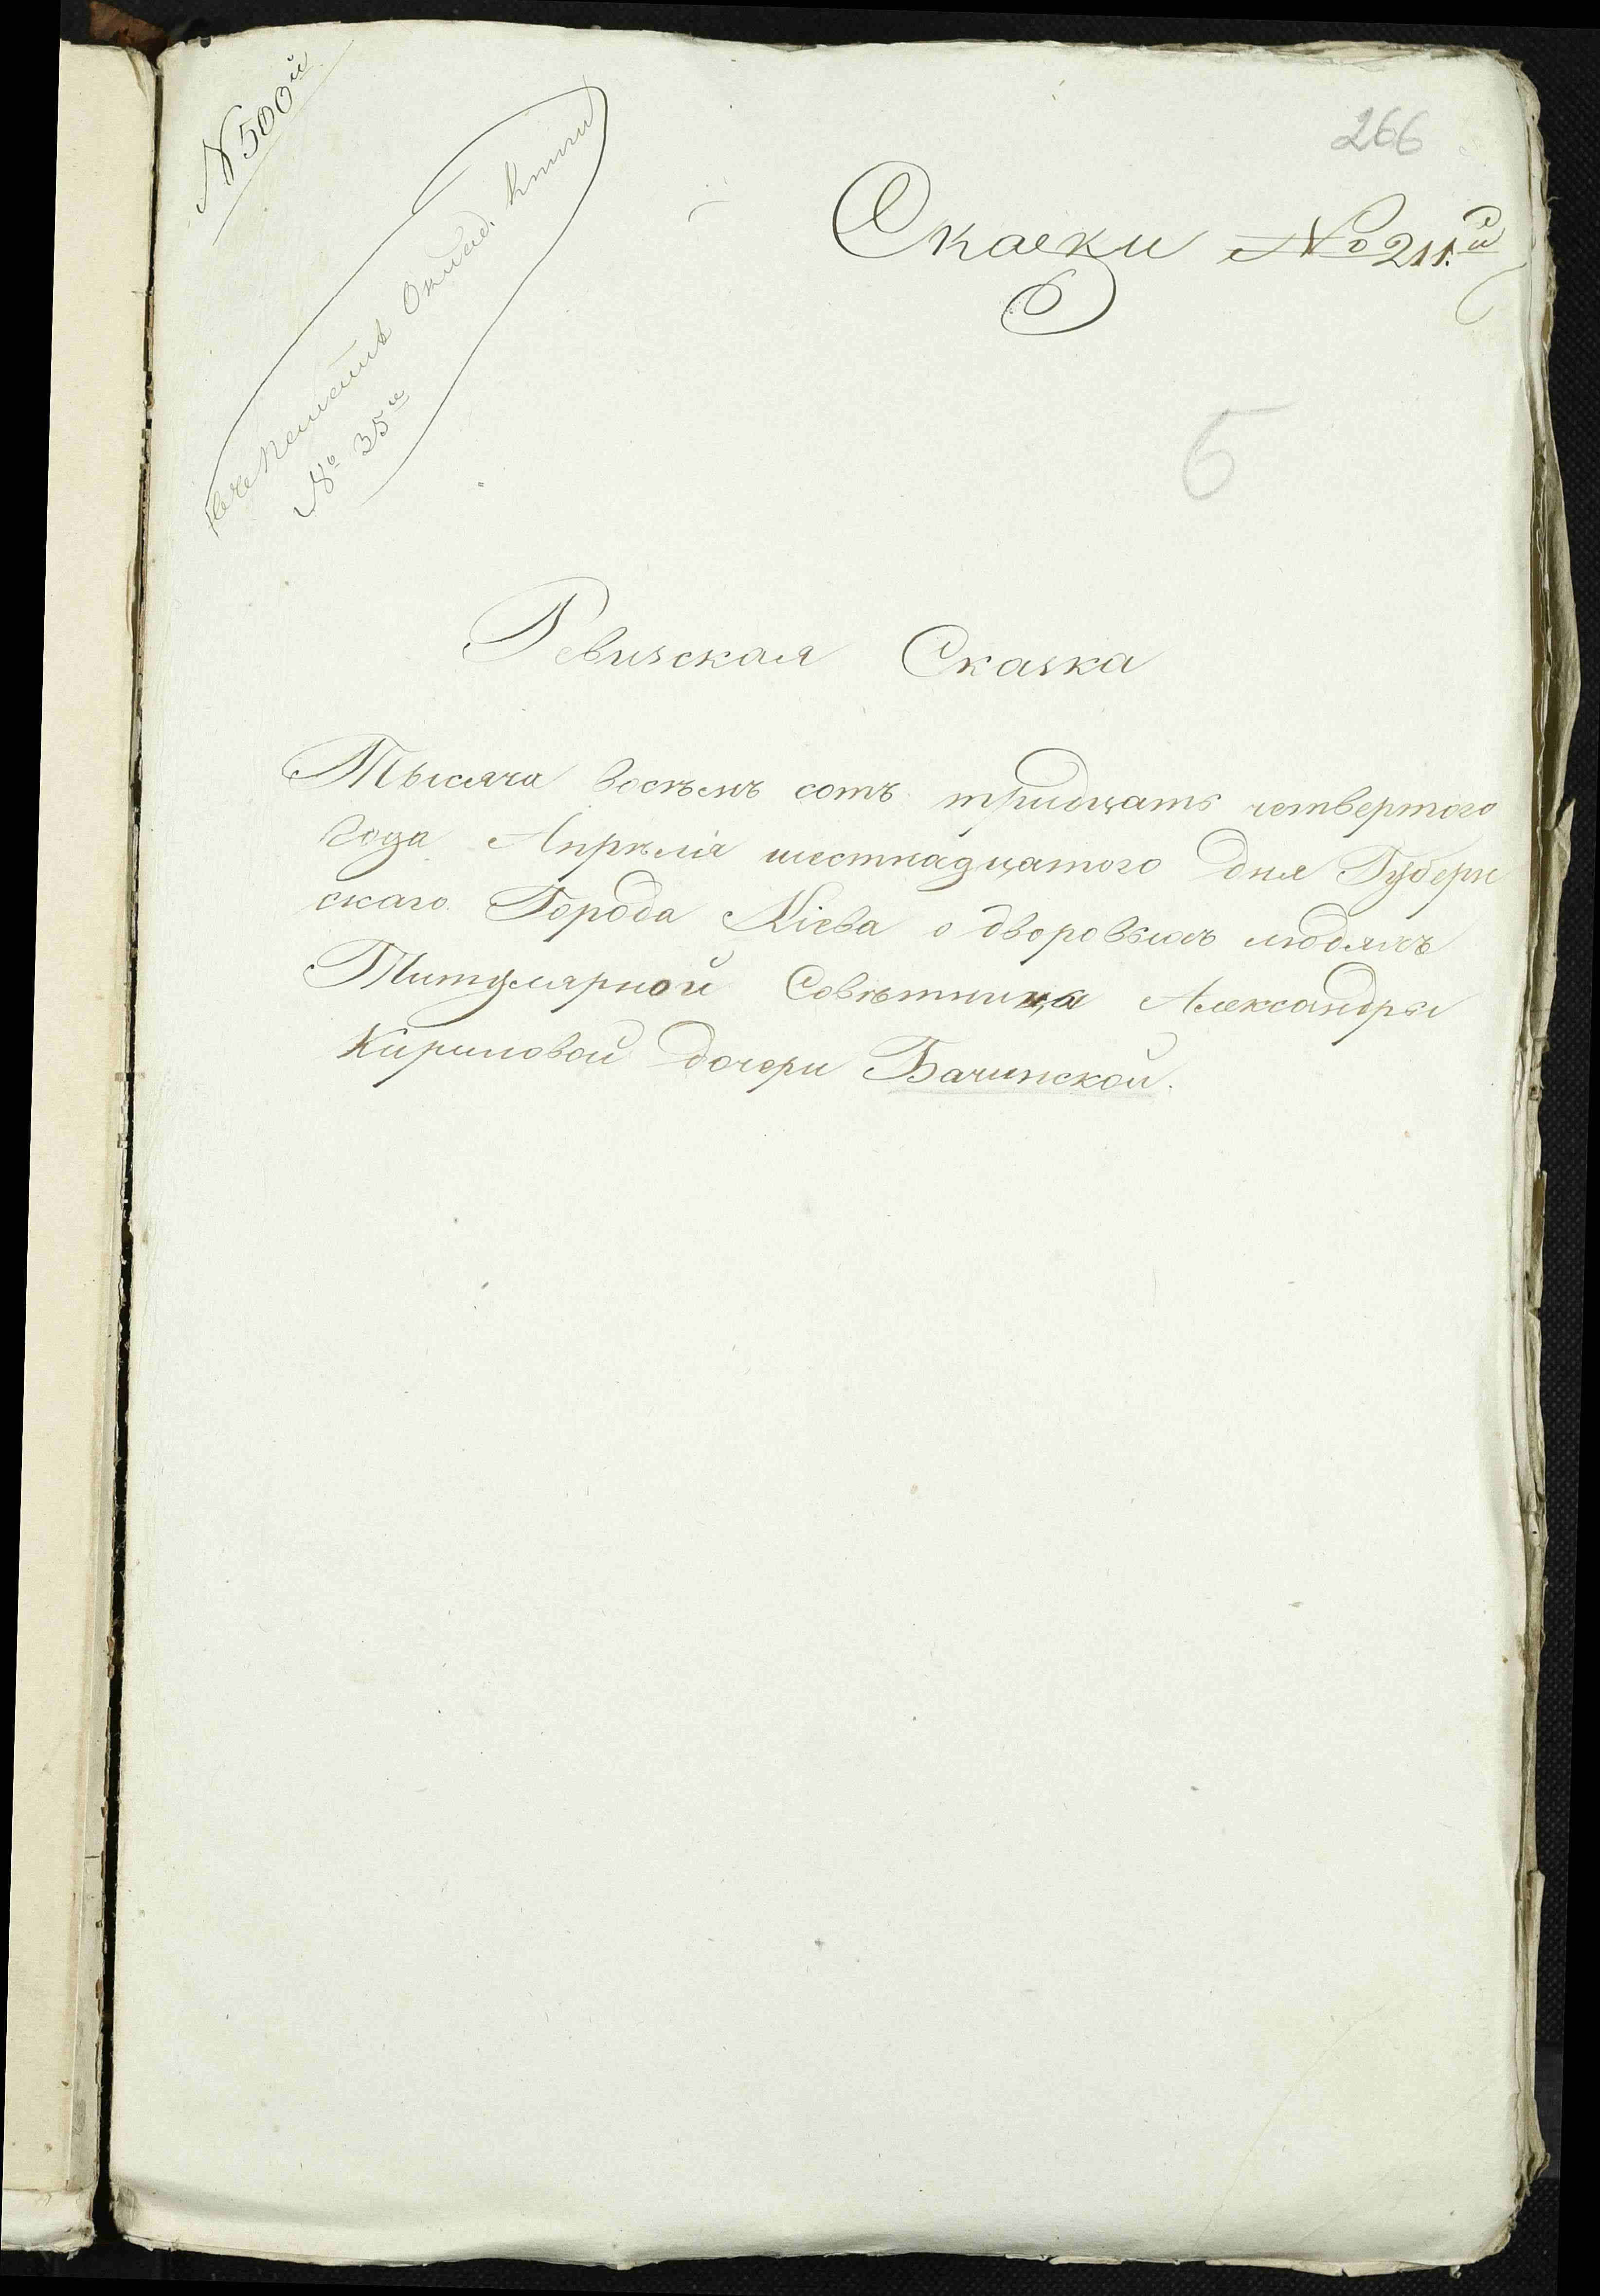 N 500й
Оклад. книги
№ 35й
266
Сказки № 211.й
Б
Ревизская Сказка
Тысяча восѣмь сотъ тридцать четвертого
Года Апрѣля шестнадцатого дня Губерн
скаго Города Кіева о дворовыхъ людяхъ
Титулярной Совѣтница Александры
Кириловой дочери Бачинской.